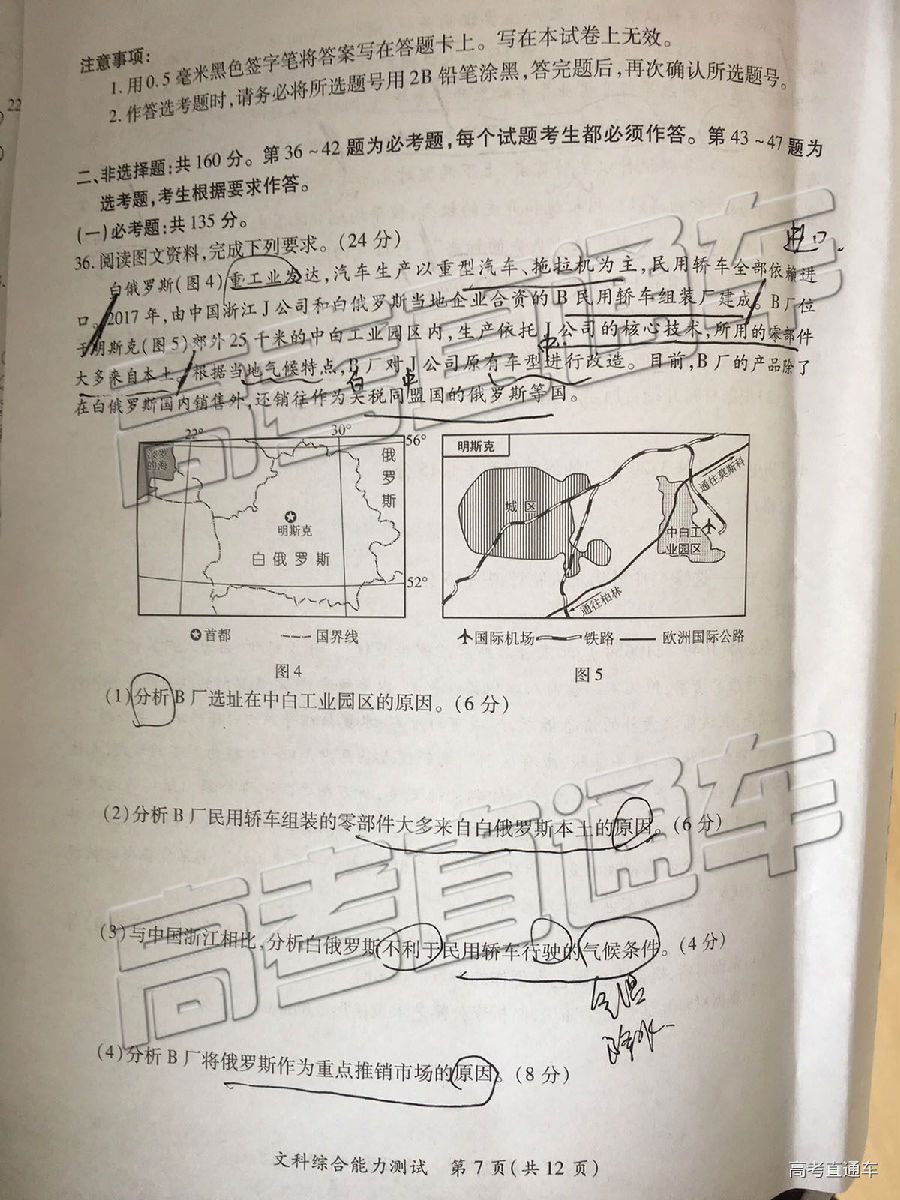 注意事项:
1.用0.5毫米黑色签字笔将答案写在答题卡上。写在本试卷上无效。
2.作答选考题时,请务必将所选题号用2B铅笔涂黑,答完题后,再次确认所选题号。
22
二、非选择题:共160分。第36~42题为必考题,每个试题考生都必须作答。第43~47题为
选考题,考生根据要求作答。
(一)必考题:共135分。
36.阅读图文资料,完成下列要求。(24分)
白俄罗斯(图4)重工业发达,汽车生产以重型汽车、拖拉机为主,民用轿车全部依赖进
口。2017年,由中国浙江J公司和白俄罗斯当地企业合资的B民用轿车组装厂建成。B厂位
于明斯克(图5)郊外25千米的中白工业园区内,生产依托J公司的核心技术,所用的零部件
大多来自本土。根据当地气候特点,B厂对J公司原有车型进行改造。目前,B厂的产品除了
在白俄罗斯国内销售外,还销往作为关税同盟国的俄罗斯等国。
22°
30°
56°
波罗的海
俄罗斯
明斯克
白俄罗斯
52°
首都
国界线
图4
明斯克
城区
通往莫斯科
中白工业园区
通往柏林
国际机场
铁路
欧洲国际公路
图5
(1)分析B厂选址在中白工业园区的原因。(6分)
(2)分析B厂民用轿车组装的零部件大多来自白俄罗斯本土的原因。(6分)
(3)与中国浙江相比,分析白俄罗斯不利于民用轿车行驶的气候条件。(4分)
气温
降水
(4)分析B厂将俄罗斯作为重点推销市场的原因。(8分)
文科综合能力测试 第7页(共12页)
高考直通车
高考直通车
高考直通车
高考直通车